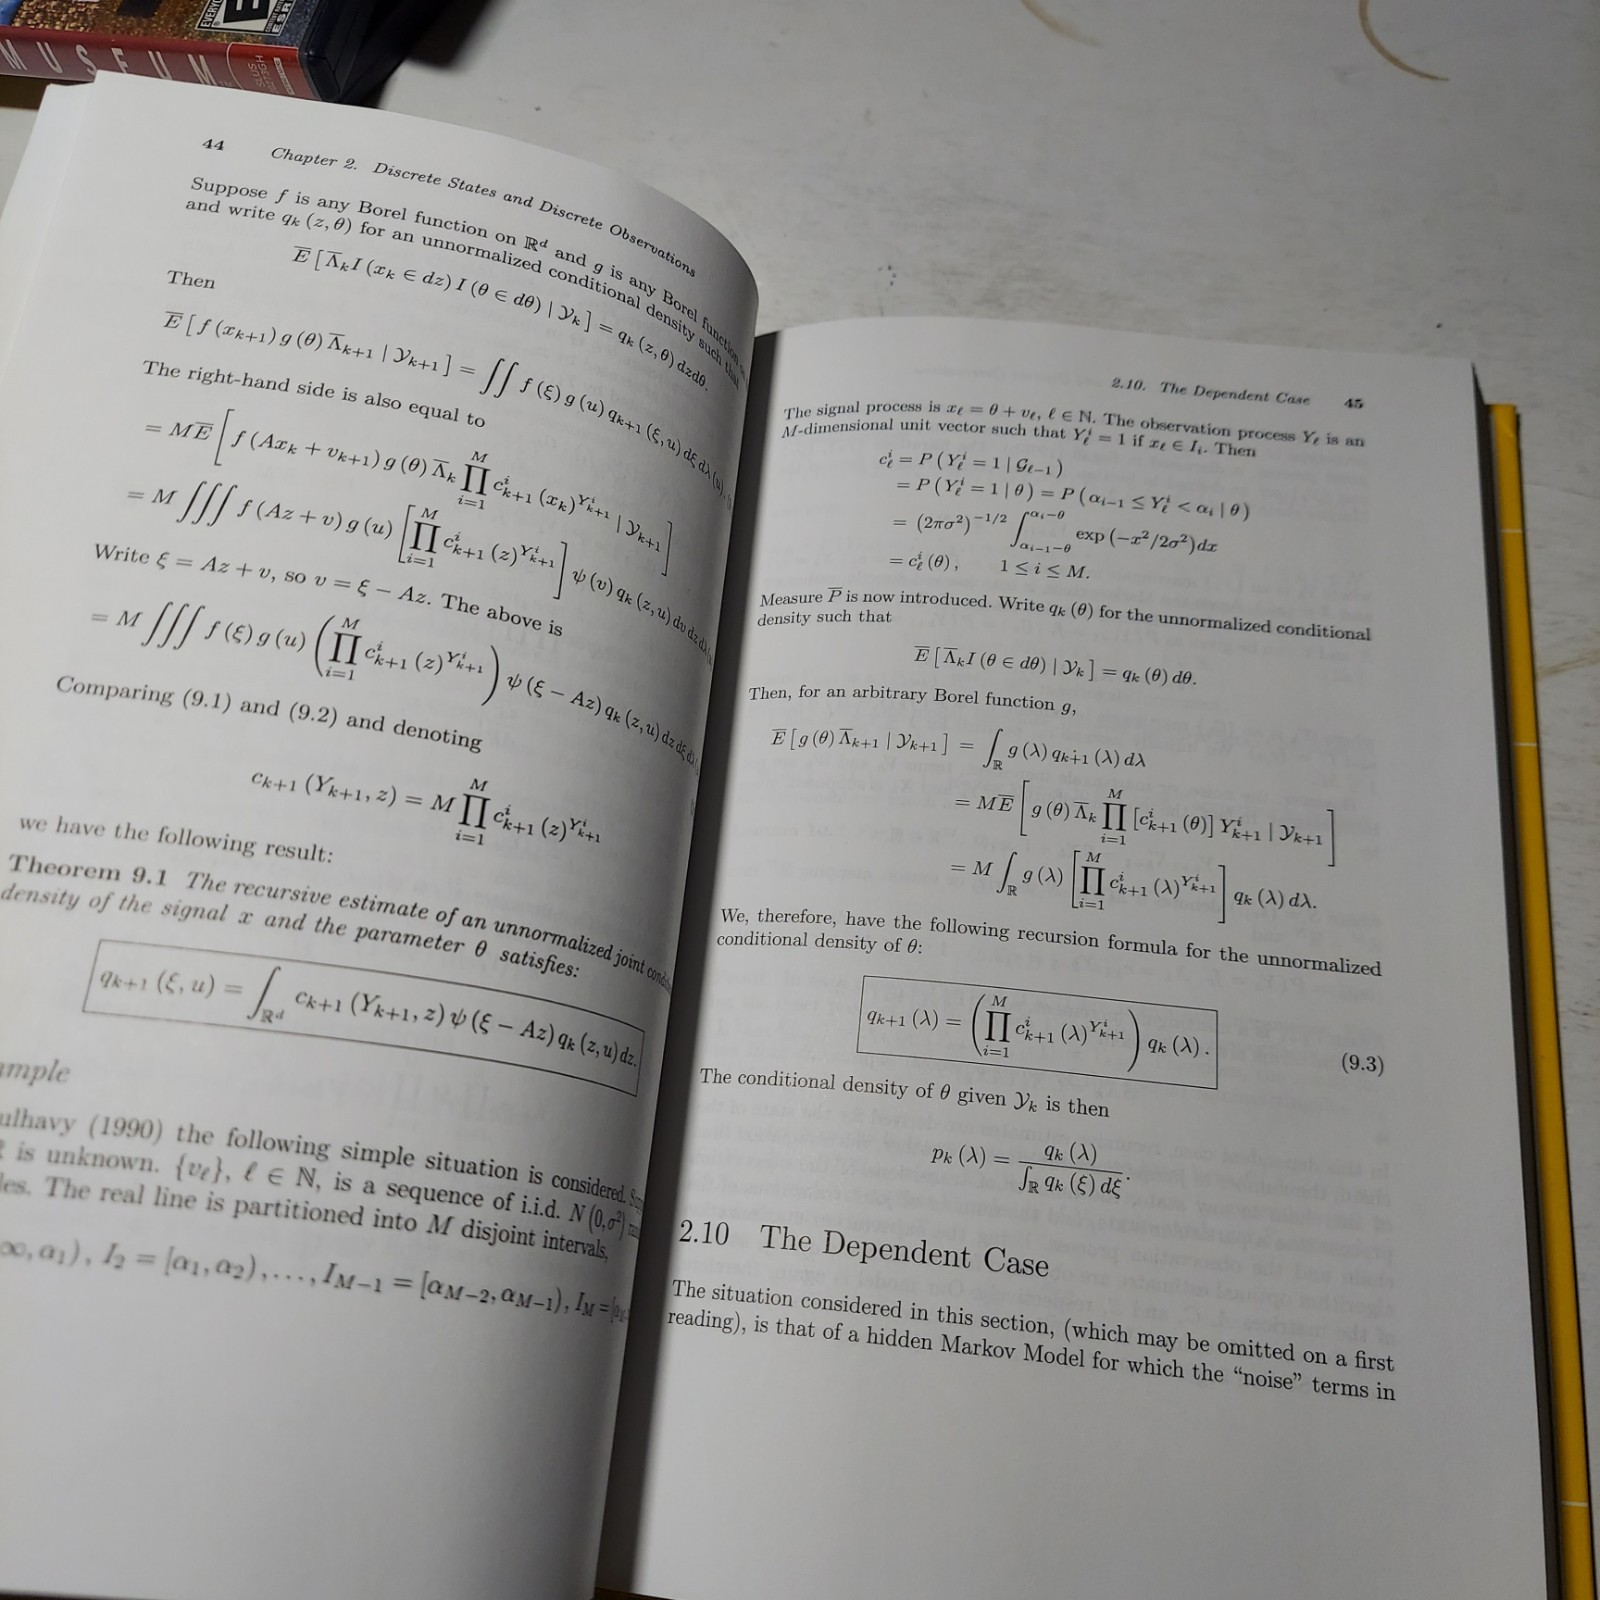 MUSEUM
EVERYONE
E
ESRB
44 Chapter 2. Discrete States and Discrete Observations
Suppose f is any Borel function on ℝᵈ and g is any Borel function
and write qₖ (z, θ) for an unnormalized conditional density such that
E̅ [Λ̅ₖI (xₖ ∈ dz) I (θ ∈ dθ) | 𝒴ₖ] = qₖ (z, θ) dzdθ.
Then
E̅ [f (xₖ₊₁) g (θ) Λ̅ₖ₊₁ | 𝒴ₖ₊₁] = ∬ f (ξ) g (u) qₖ₊₁ (ξ, u) dξ dλ (u).
The right-hand side is also equal to
= ME̅ [f (Axₖ + vₖ₊₁) g (θ) Λ̅ₖ ∏_{i=1}^{M} c^i_{k+1} (xₖ)^{Y^i_{k+1}} | 𝒴ₖ₊₁]
= M ∭ f (Az + v) g (u) [∏_{i=1}^{M} c^i_{k+1} (z)^{Y^i_{k+1}}] ψ (v) qₖ (z, u) dv dz dλ
Write ξ = Az + v, so v = ξ − Az. The above is
= M ∭ f (ξ) g (u) (∏_{i=1}^{M} c^i_{k+1} (z)^{Y^i_{k+1}}) ψ (ξ − Az) qₖ (z, u) dz dξ dλ
Comparing (9.1) and (9.2) and denoting
cₖ₊₁ (Yₖ₊₁, z) = M ∏_{i=1}^{M} c^i_{k+1} (z)^{Y^i_{k+1}}
we have the following result:
Theorem 9.1 The recursive estimate of an unnormalized joint
density of the signal x and the parameter θ satisfies:
qₖ₊₁ (ξ, u) = ∫_{ℝᵈ} cₖ₊₁ (Yₖ₊₁, z) ψ (ξ − Az) qₖ (z, u) dz.
ample
ulhavy (1990) the following simple situation is considered.
is unknown. {v_ℓ}, ℓ ∈ ℕ, is a sequence of i.i.d. N (0, σ²)
les. The real line is partitioned into M disjoint intervals,
∞, α₁), I₂ = [α₁, α₂), . . . , I_{M−1} = [α_{M−2}, α_{M−1}), I_M =
2.10. The Dependent Case 45
The signal process is x_ℓ = θ + v_ℓ, ℓ ∈ ℕ. The observation process Y_ℓ is an
M-dimensional unit vector such that Y^i_ℓ = 1 if x_ℓ ∈ I_i. Then
c^i_ℓ = P (Y^i_ℓ = 1 | 𝒢_{ℓ−1})
= P (Y^i_ℓ = 1 | θ) = P (α_{i−1} ≤ Y^i_ℓ < α_i | θ)
= (2πσ²)^{−1/2} ∫_{α_{i−1}−θ}^{α_i−θ} exp (−x²/2σ²) dx
= c^i_ℓ (θ), 1 ≤ i ≤ M.
Measure P̅ is now introduced. Write qₖ (θ) for the unnormalized conditional
density such that
E̅ [Λ̅ₖI (θ ∈ dθ) | 𝒴ₖ] = qₖ (θ) dθ.
Then, for an arbitrary Borel function g,
E̅ [g (θ) Λ̅ₖ₊₁ | 𝒴ₖ₊₁] = ∫_ℝ g (λ) qₖ₊₁ (λ) dλ
= ME̅ [g (θ) Λ̅ₖ ∏_{i=1}^{M} [c^i_{k+1} (θ)] Y^i_{k+1} | 𝒴ₖ₊₁]
= M ∫_ℝ g (λ) [∏_{i=1}^{M} c^i_{k+1} (λ)^{Y^i_{k+1}}] qₖ (λ) dλ.
We, therefore, have the following recursion formula for the unnormalized
conditional density of θ:
qₖ₊₁ (λ) = (∏_{i=1}^{M} c^i_{k+1} (λ)^{Y^i_{k+1}}) qₖ (λ). (9.3)
The conditional density of θ given 𝒴ₖ is then
pₖ (λ) = qₖ (λ) / ∫_ℝ qₖ (ξ) dξ.
2.10 The Dependent Case
The situation considered in this section, (which may be omitted on a first
reading), is that of a hidden Markov Model for which the “noise” terms in